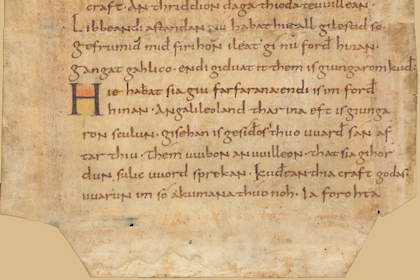 craft · An thriddion daga thioda te uuillean ·
Libbeandi astandan nu habat hie all gilestid so ·
gefrumid mid firihon ileat gi nu ford hinan ·
gangat gahlico · endi giduat it them is giungaron kuđ ·
Hie habat sia giu farfarana endi is im ford
hinan · An galileoland thar ina eft is giunga
ron sculun · gisehan is gesiđos thuo uuard san af
tar thiu · them uuibon an uuilleon · that sia gihor
dun sulic uuord sprekan · kuđean thia craft godas
uuarun im so akumana thuo noh · Ia forohta